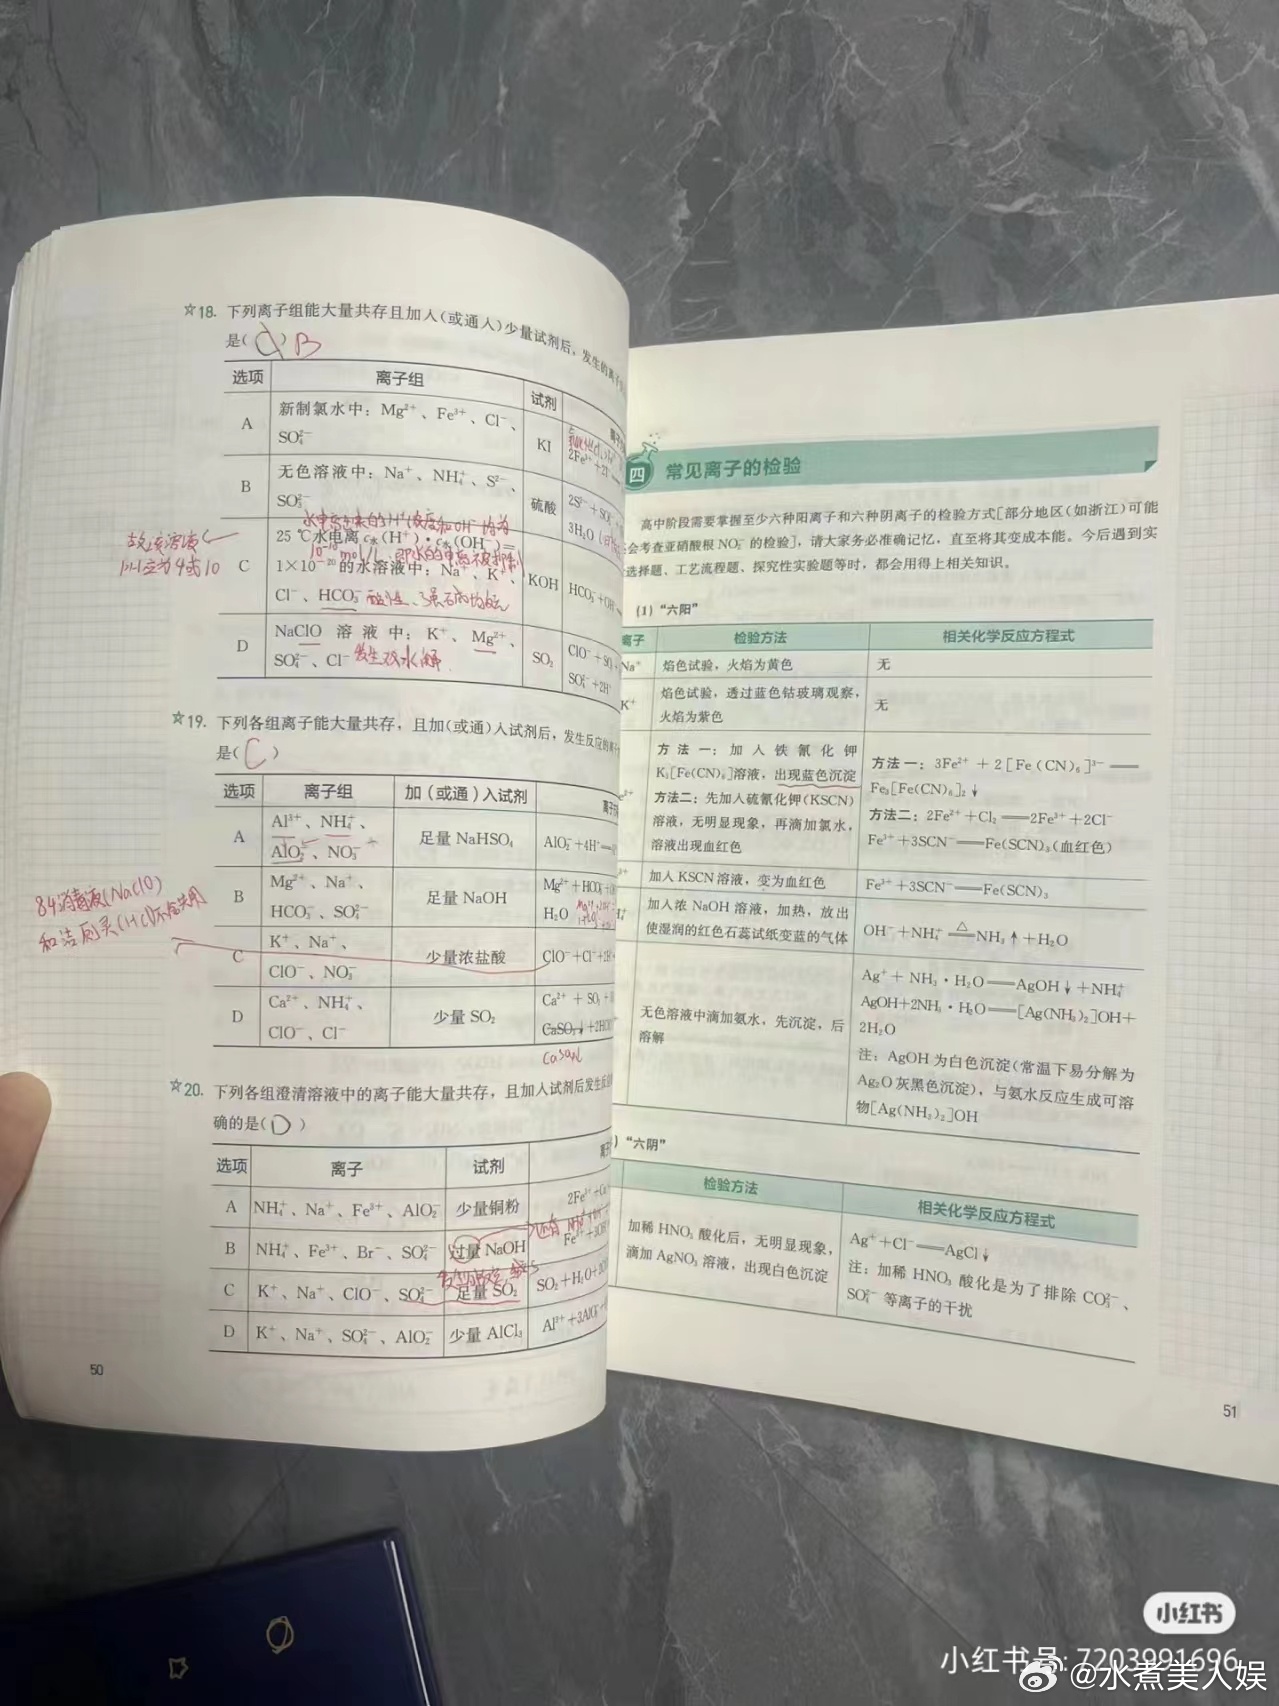 ☆18. 下列离子组能大量共存且加入(或通入)少量试剂后,发生的离子
是( ) B
选项 离子组 试剂
A 新制氯水中:Mg²⁺、Fe³⁺、Cl⁻、SO₄²⁻ KI
2Fe³⁺+2I⁻
B 无色溶液中:Na⁺、NH₄⁺、S²⁻、SO₃²⁻ 硫酸 2S²⁻+SO₃²⁻
3H₂O
水电离出来的H⁺浓度和OH⁻均为
10⁻¹⁰mol/L,即水的电离被抑制
故该溶液
pH应为4或10
C 25 ℃水电离 c水(H⁺)·c水(OH⁻)=
1×10⁻²⁰的水溶液中:Na⁺、K⁺、
Cl⁻、HCO₃⁻ KOH HCO₃⁻+OH⁻
D NaClO 溶液中:K⁺、Mg²⁺、
SO₄²⁻、Cl⁻ 发生双水解 SO₂ ClO⁻+SO₂
SO₄²⁻+2H⁺
☆19. 下列各组离子能大量共存,且加(或通)入试剂后,发生反应的离子
是( C )
选项 离子组 加(或通)入试剂
A Al³⁺、NH₄⁺、
AlO₂⁻、NO₃⁻ 足量 NaHSO₄ AlO₂⁻+4H⁺
B Mg²⁺、Na⁺、
HCO₃⁻、SO₄²⁻ 足量 NaOH Mg²⁺+HCO₃⁻
H₂O
84消毒液(NaClO)
和洁厕灵(HCl)不能共用
C K⁺、Na⁺、
ClO⁻、NO₃⁻ 少量浓盐酸 ClO⁻+Cl⁻+2H⁺
D Ca²⁺、NH₄⁺、
ClO⁻、Cl⁻ 少量 SO₂ Ca²⁺+SO₂
CaSO₃↓+2HClO
CaSO₄
☆20. 下列各组澄清溶液中的离子能大量共存,且加入试剂后发生反应
确的是( D )
选项 离子 试剂
A NH₄⁺、Na⁺、Fe³⁺、AlO₂⁻ 少量铜粉 2Fe³⁺+Cu
B NH₄⁺、Fe³⁺、Br⁻、SO₄²⁻ 过量 NaOH Fe³⁺+3OH⁻
C K⁺、Na⁺、ClO⁻、SO₄²⁻ 足量 SO₂ SO₂+H₂O
D K⁺、Na⁺、SO₄²⁻、AlO₂⁻ 少量 AlCl₃ Al³⁺+3AlO₂⁻
50
四 常见离子的检验
高中阶段需要掌握至少六种阳离子和六种阴离子的检验方式[部分地区(如浙江)可能
会考查亚硝酸根 NO₂⁻ 的检验],请大家务必准确记忆,直至将其变成本能。今后遇到实
选择题、工艺流程题、探究性实验题等时,都会用得上相关知识。
(1)“六阳”
离子 检验方法 相关化学反应方程式
Na⁺ 焰色试验,火焰为黄色 无
K⁺ 焰色试验,透过蓝色钴玻璃观察,
火焰为紫色 无
方法一:加入铁氰化钾
K₃[Fe(CN)₆]溶液,出现蓝色沉淀
方法二:先加入硫氰化钾(KSCN)
溶液,无明显现象,再滴加氯水,
溶液出现血红色
方法一:3Fe²⁺+2[Fe(CN)₆]³⁻══
Fe₃[Fe(CN)₆]₂↓
方法二:2Fe²⁺+Cl₂══2Fe³⁺+2Cl⁻
Fe³⁺+3SCN⁻══Fe(SCN)₃(血红色)
加入 KSCN 溶液,变为血红色 Fe³⁺+3SCN⁻══Fe(SCN)₃
加入浓 NaOH 溶液,加热,放出
使湿润的红色石蕊试纸变蓝的气体 OH⁻+NH₄⁺ △══ NH₃↑+H₂O
无色溶液中滴加氨水,先沉淀,后
溶解
Ag⁺+NH₃·H₂O══AgOH↓+NH₄⁺
AgOH+2NH₃·H₂O══[Ag(NH₃)₂]OH+
2H₂O
注:AgOH 为白色沉淀(常温下易分解为
Ag₂O 灰黑色沉淀),与氨水反应生成可溶
物[Ag(NH₃)₂]OH
)“六阴”
检验方法 相关化学反应方程式
加稀 HNO₃ 酸化后,无明显现象,
滴加 AgNO₃ 溶液,出现白色沉淀
Ag⁺+Cl⁻══AgCl↓
注:加稀 HNO₃ 酸化是为了排除 CO₃²⁻、
SO₃²⁻ 等离子的干扰
51
小红书
小红书号:7203991696
@水煮美人娱